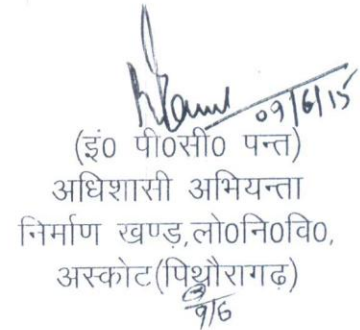 09/6/15
(इं0 पी0सी0 पन्त)
अधिशासी अभियन्ता
निर्माण खण्ड,लो0नि0वि0,
अस्कोट(पिथौरागढ़)
9/6